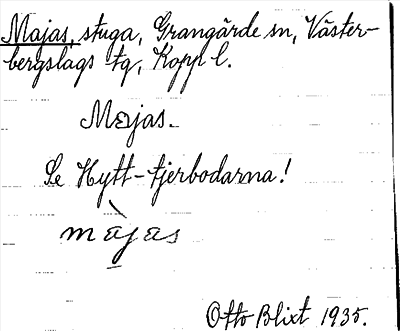 Majas, stuga, Grangärde sn, Väster-
bergslags tg, Kopp l.
Majas.
Se Hytt-tjerbodarna!
màjas
Otto Blixt 1935.